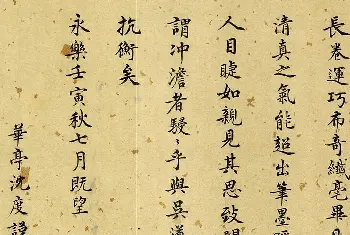 長卷運巧布奇纖毫畢
清真之氣能超出筆墨
人目睫如親見其思致
謂沖澹者駸々乎與吳
抗衡矣
永樂壬寅秋七月既望
華亭沈度謹